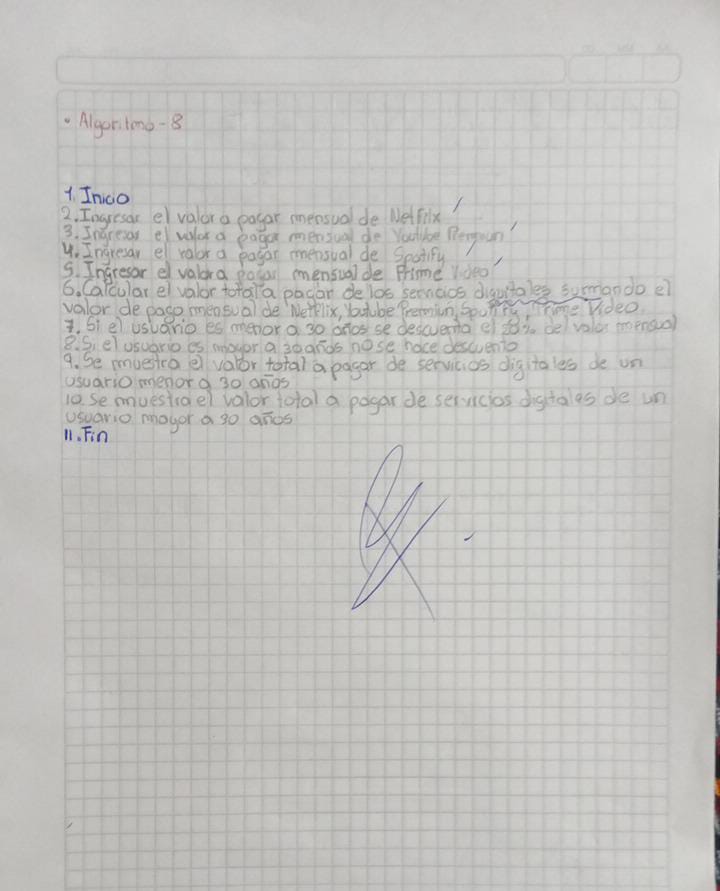 • Algoritmo - 8
1. Inicio
2. Ingresar el valor a pagar mensual de Netflix
3. Ingresar el valor a pagar mensual de Youtube Premiun
4. Ingresar el valor a pagar mensual de Spotify
5. Ingresar el valor a pagar mensual de Prime Video
6. Calcular el valor total a pagar de los servicios digitales sumando el
valor de pago mensual de Netflix, Youtube Premiun, Spotify, Prime Video.
7. Si el usuario es menor a 30 años se descuenta el % del valor mensual
8. Si el usuario es mayor a 30 años no se hace descuento
9. Se muestra el valor total a pagar de servicios digitales de un
usuario menor a 30 años
10. Se muestra el valor total a pagar de servicios digitales de un
usuario mayor a 30 años
11. Fin